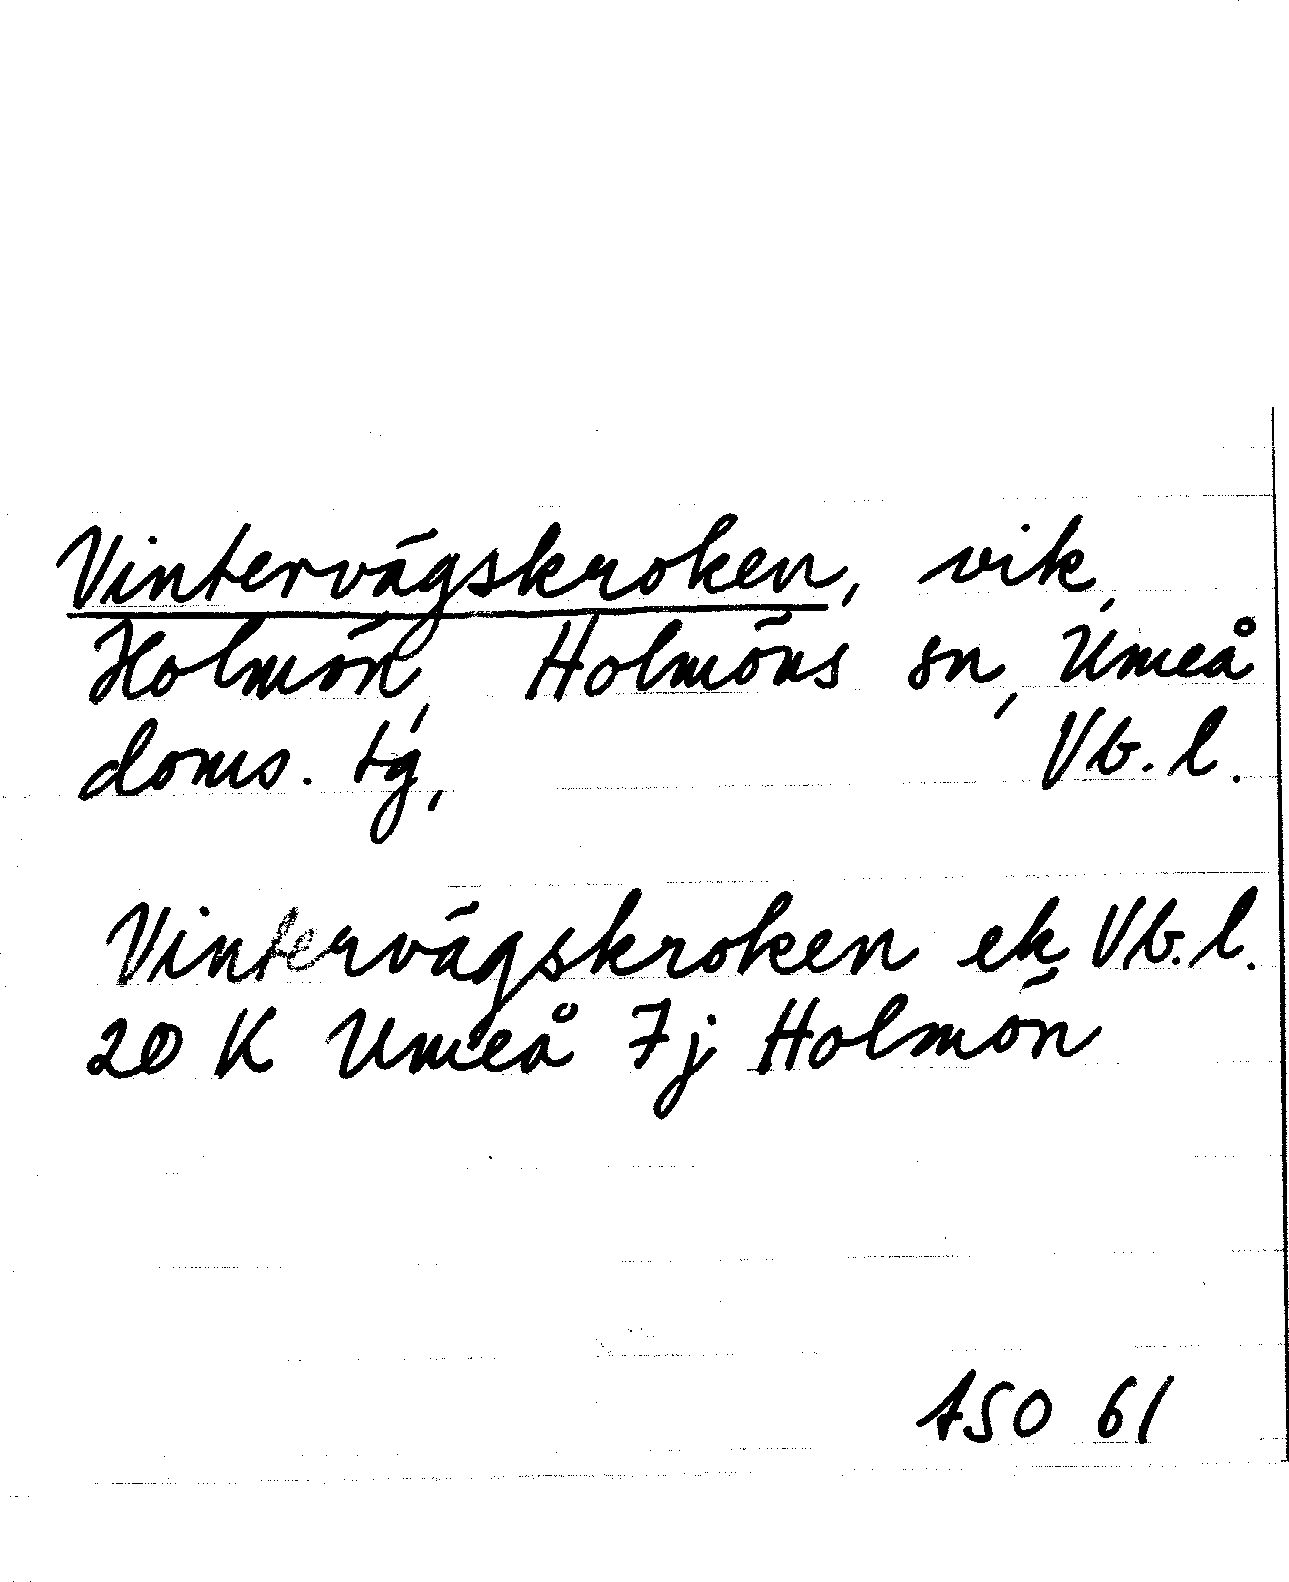 Vintervägskroken, vik,
Holmön, Holmöns sn, Umeå
doms. tg, Vb. l.
Vintervägskroken ek Vb. l.
20 K Umeå 7j Holmön
ASO 61